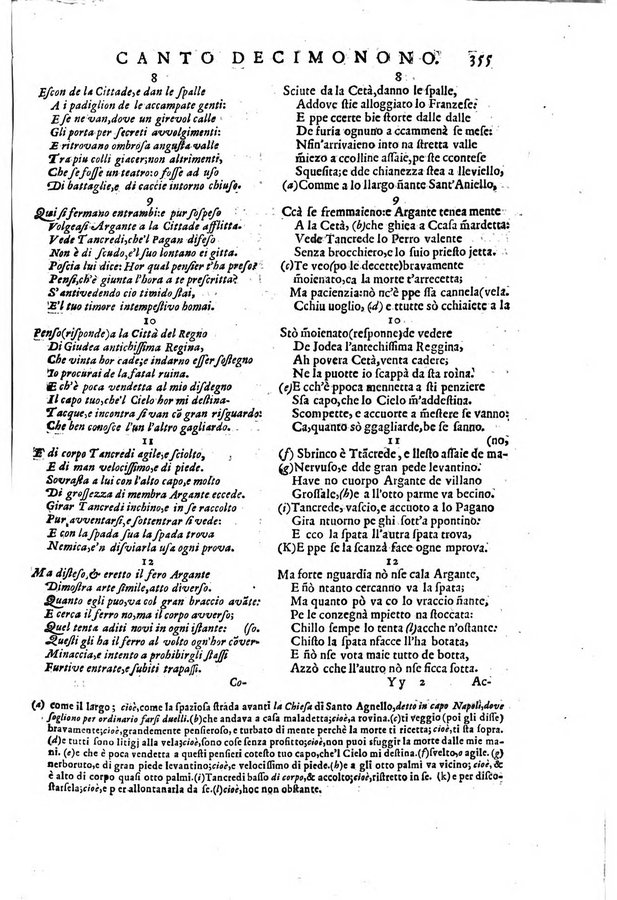 CANTO DECIMONONO. 355
8
Escon de la Cittade, e dan le spalle
A i padiglion de le accampate genti:
E se ne van, dove un girevol calle
Gli porta per secreti avvolgimenti:
E ritrovano ombrosa angusta valle
Tra piu colli giacer; non altrimenti,
Che se fosse un teatro: o fosse ad uso
Di battaglie, e di caccie intorno chiuso.
9
Qui si fermano entrambi: e pur sospeso
Volgeasi Argante a la Cittade afflitta.
Vede Tancredi, che'l Pagan difeso
Non è di scudo, e'l suo lontano ei gitta.
Poscia lui dice: Hor qual pensier t'ha preso?
Pensi, ch'è giunta l'hora a te prescritta?
S'antivedendo cio timido stai,
E'l tuo timore intempestivo homai.
10
Penso (risponde) a la Città del Regno
Di Giudea antichissima Regina,
Che vinta hor cade; e indarno esser sostegno
Io procurai de la fatal ruina.
E ch'è poca vendetta al mio disdegno
Il capo tuo, che'l Cielo hor mi destina.
Tacque, e incontra si van cō gran risguardo:
Che ben conosce l'un l'altro gagliardo.
11
E di corpo Tancredi agile, e sciolto,
E di man velocissimo, e di piede.
Sovrasta a lui con l'alto capo, e molto
Di grossezza di membra Argante eccede.
Girar Tancredi inchino, e in se raccolto
Pur avventarsi, e sottentrar si vede:
E con la spada sua la spada trova
Nemica, e'n disviarla usa ogni prova.
12
Ma disteso, & eretto il fero Argante
Dimostra arte simile, atto diverso.
Quanto egli puo, va col gran braccio avāte:
E cerca il ferro no, ma il corpo avverso;
Quel tenta aditi novi in ogni istante: (so.
Questi gli ha il ferro al volto ogn'hor cōver-
Minaccia, e intento a prohibirgli stassi
Furtive entrate, e subiti trapassi.
Co-
8
Sciute da la Cetà, danno le spalle,
Addove stie alloggiato lo Franzese:
E ppe ccerte bie storte dalle dalle
De furia ognuno a ccammenà se mese:
Nfin'arrivaieno into na stretta valle
m̄iezo a ccolline assaie, pe ste ccontese
Squesita; e dde chianezza stea a lleviello,
(a) Comme a lo llargo n̄ante Sant'Aniello,
9
Ccà se fremmaieno: e Argante tenea mente
A la Cetà, (b) che ghica a Ccasa mardetta:
Vede Tancrede lo Perro valente
Senza brocchiero, e lo suio priesto jetta.
(c) Te veo (po le decette) bravamente
m̄oienato, ca la morte t'arrecetta;
Ma pacienzia: nò nc'è ppe ssa cannela (vela.
Cchiu uoglio, (d) e ttutte sò cchiaiete a la
10
Stò m̄oienato (responne) de vedere
De Jodea l'antechissima Reggina,
Ah povera Cetà, venta cadere;
Ne la puotte io scappà da sta roina.
(e) E cch'è ppoca mennetta a sti penziere
Ssa capo, che lo Cielo m'addestina.
Scompette, e accuorte a mestere se vanno:
Ca, quanto sò ggagliarde, bè se fanno.
11 (no,
(f) Sbrinco è Ttācrede, e llesto assaie de ma-
(g) Nervuso, e dde gran pede levantino.
Have no cuorpo Argante de villano
Grossale, (h) e a ll'otto parme va becino.
(i) Tancrede, vascio, e accuoto a lo Pagano
Gira ntuorno pe ghi sott'a pponrino:
E cco la spata ll'autra spata trova,
(K) E ppe se la scanzà face ogne mprova.
12
Ma forte nguardia nò nse cala Argante,
E n̄ò ntanto cercanno va la spata;
Ma quanto pò va co lo vraccio n̄ante,
Pe le conzegnà mpietto na stoccata:
Chillo sempe lo tenta (l) acche n'ostante:
Chisto la spata n'faccie l'ha botata,
E n̄ò nse vota maie tutto de botta,
Azzò cche ll'autro nò nse ficca sotta.
Yy 2 Ac-
(a) come il largo; cioè, come la spaziosa strada avanti la Chiesa di Santo Agnello, detto in capo Napoli, dove
sogliono per ordinario farsi duelli. (b) che andava a casa maladetta; cioè, a rovina. (c) ti veggio (poi gli disse)
bravamente; cioè, grandemente pensieroso, e turbato di mente perchè la morte ti ricetta; cioè, ti sta sopra.
(d) e tutti sono litigj alla vela; cioè, sono cose senza profitto; cioè, non puoi sfuggir la morte dalle mie ma
ni. (e) e che è poca vendetta a questi pensieri cotesto tuo capo, che'l Cielo mi destina. (f) svelto, o agile. (g)
nerboruto, e di gran piede levantino; cioè, e velocissimo di piede. (h) e a gli otto palmi va vicino; cioè, &
è alto di corpo quasi otto palmi. (i) Tancredi basso di corpo, & accolto; cioè, ristretto in se. (k) e per disco-
starsela; cioè, e per allontanarla da se. (l) cioè, hoc non obstante.